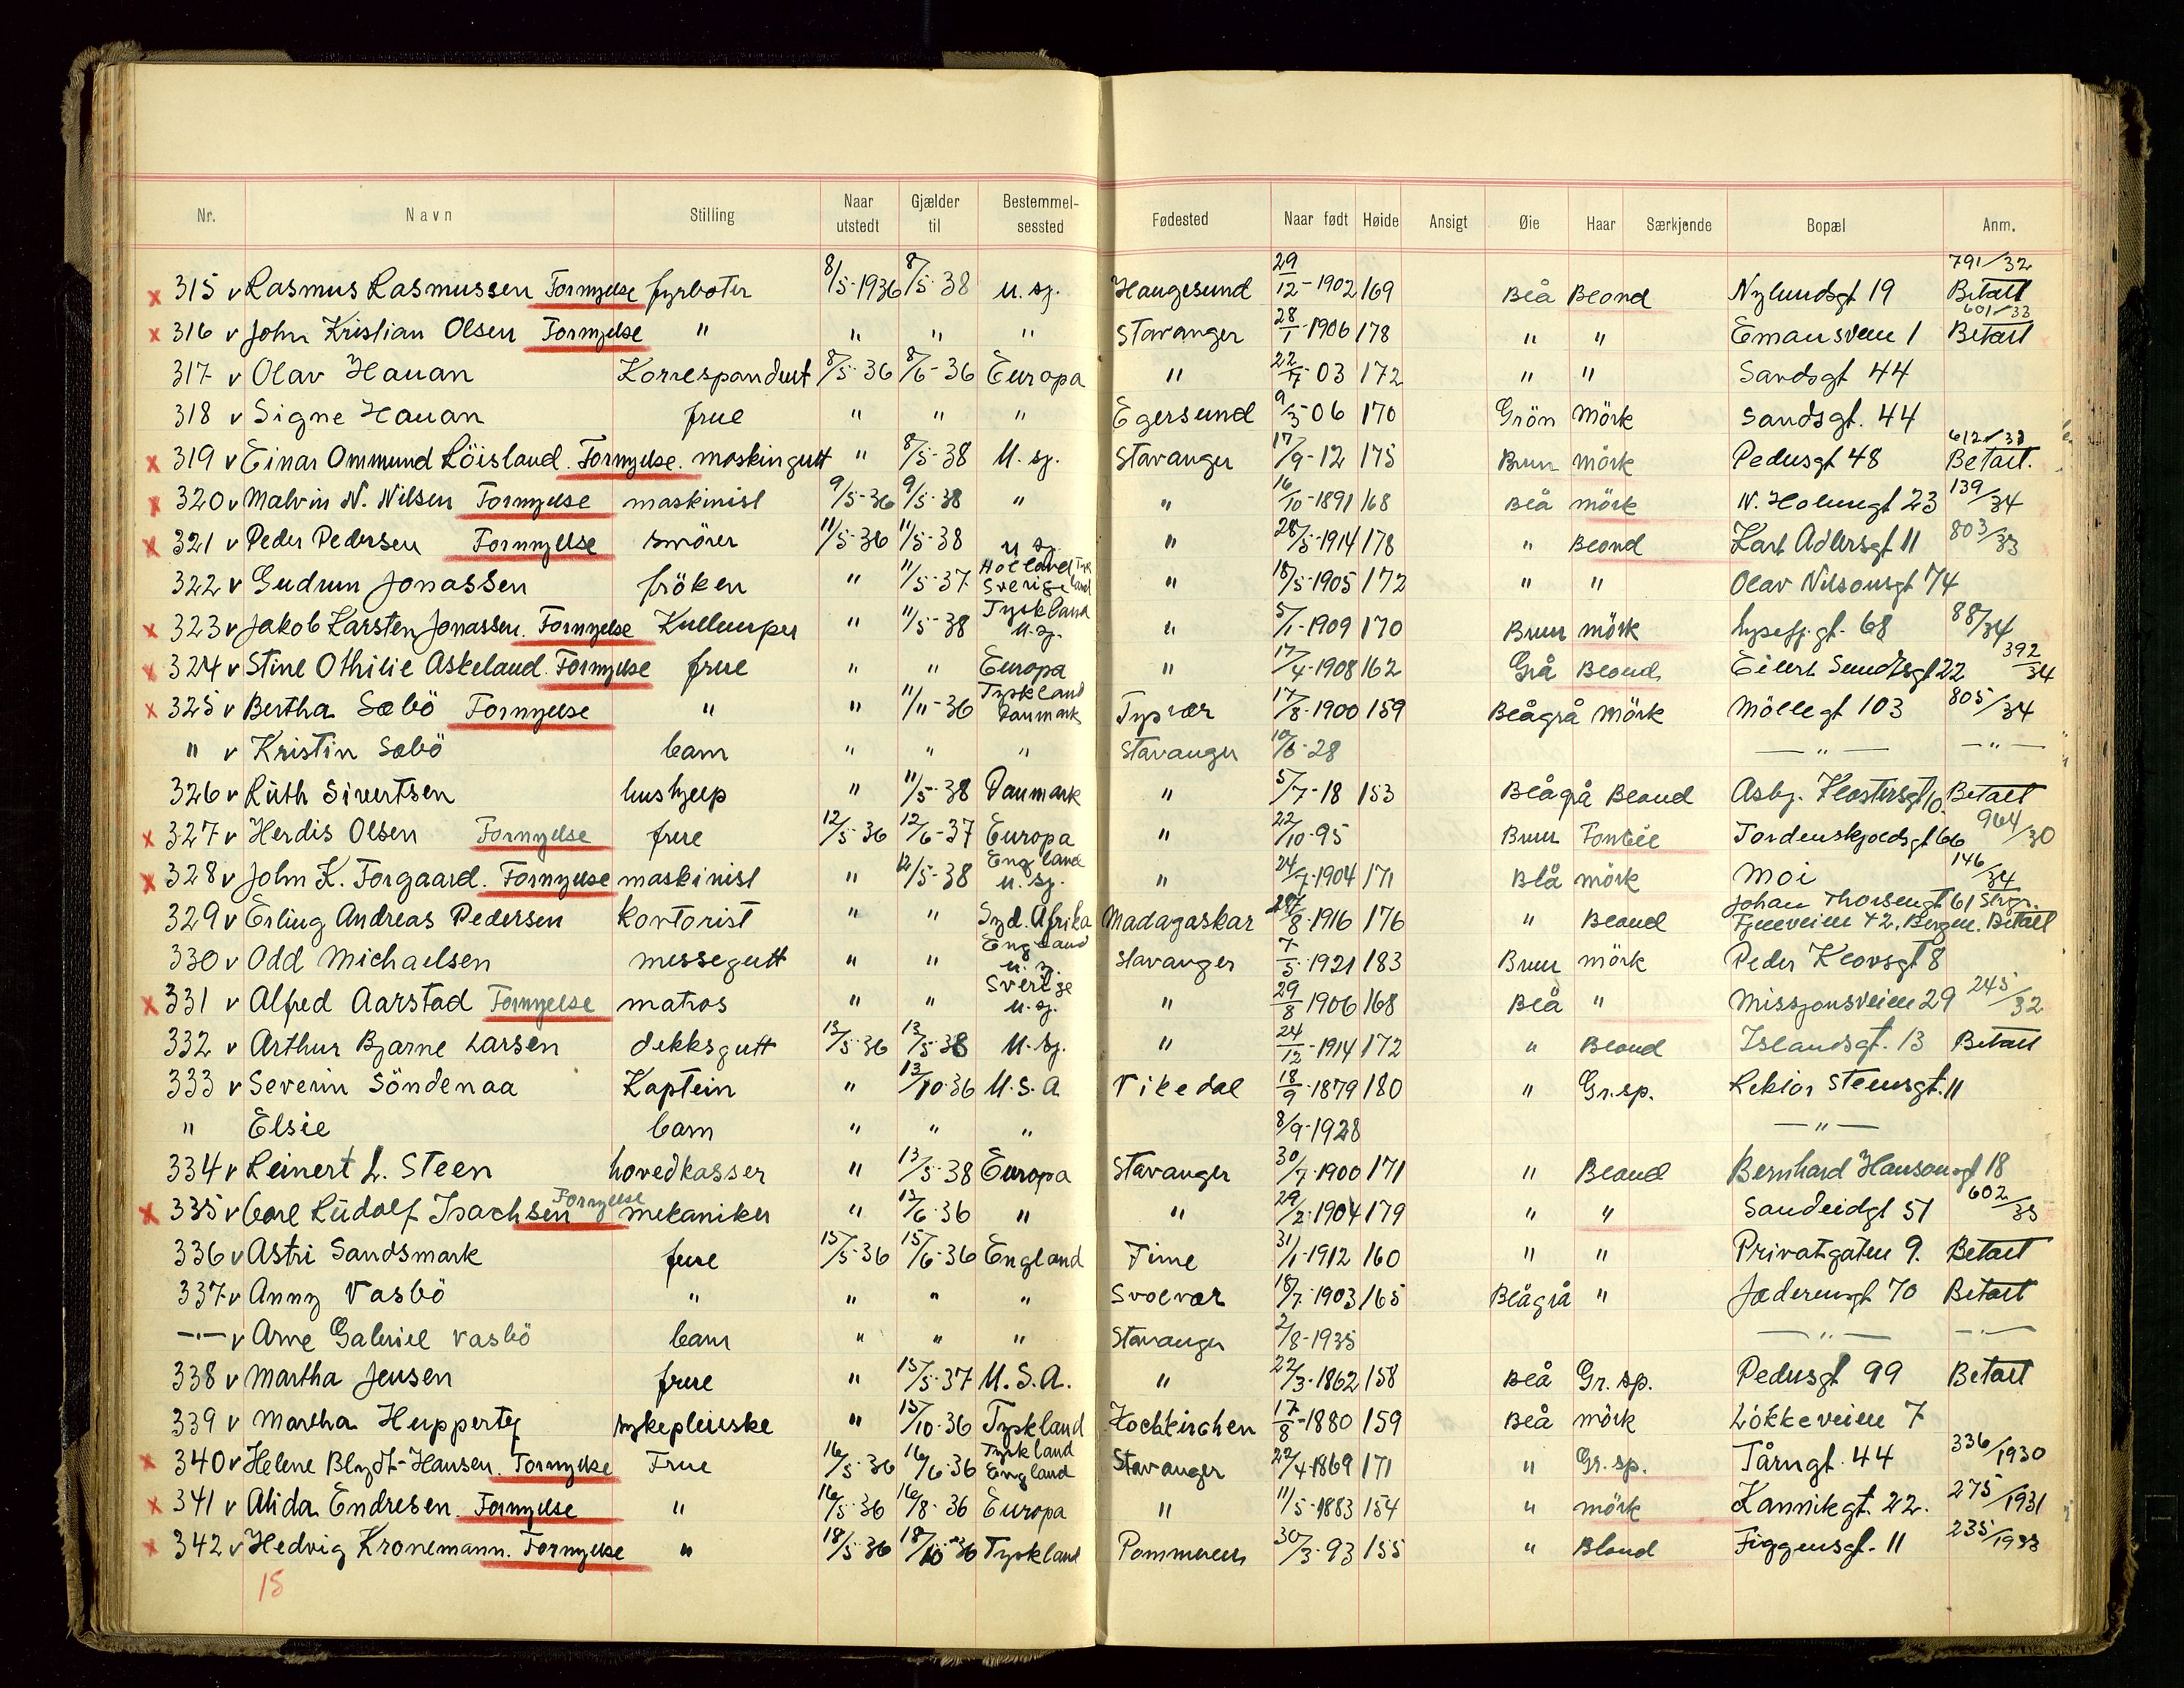 Nr. Navn Stilling Naar utstedt Gjælder til Bestemmel-sessted Fødested Naar født Høide Ansigt Øie Haar Særkjende Bopæl Anm.
x 315 v Rasmus Rasmussen Fornyelse fyrböter 8/5-1936 8/5-38 U. sj. Haugesund 29/12-1902 169 Blå Blond Nylundsgt 19 791/32 Betalt
x 316 v John Kristian Olsen Fornyelse " " " " Stavanger 28/1-1906 178 " " Emausveien 1 601/33 Betalt
317 v Olav Hauan Korrespondent 8/5-36 8/6-36 Europa " 22/7-03 172 " " Sandsgt 44
318 v Signe Hauan frue " " " Egersund 9/3-06 170 Grön Mörk Sandsgt. 44
x 319 v Einar Ommund Löisland. Fornyelse. maskingutt " 8/5-38 U. sj. Stavanger 17/9-12 175 Brun mörk Pedersgt 48 612/33 Betalt.
x 320 v Malvin N. Nilsen Fornyelse maskinist 9/5-36 9/5-38 " " 16/10-1891 168 Blå mörk N. Holmegt 23 139/34
x 321 v Peder Pedersen Fornyelse smörer 11/5-36 11/5-38 U sj. " 28/5-1914 178 " Blond Karl Adlersgt 11 803/33
322 v Gudrun Jonassen fröken " 11/5-37 Holland Sverige " 18/5-1905 172 " " Olav Nilsonsgt 74
x 323 v Jakob Karsten Jonassen. Fornyelse Kullemper " 11/5-38 Tyskland U. sj. " 5/1-1909 170 Brun mörk Lysefj.gt. 68 88/34
x 324 v Stine Othilie Askeland. Fornyelse frue " " Europa " 17/4-1908 162 Grå Blond Eilert Sundtsgt 22 392/34
x 325 v Bertha Sæbö Fornyelse " " 11/11-36 Tyskland Danmark Tysvær 17/8-1900 159 Blågrå Mörk Möllegt 103 805/34
" v Kristin Sæbö barn " " " Stavanger 10/6-28 —"— —"—
326 v Rüth Sivertsen hushjelp " 11/5-38 Danmark " 5/7-18 153 Blågrå Blond Asbj. Klostersgt 10 Betalt
x 327 v Herdis Olsen Fornyelse frue 12/5-36 12/6-37 Europa " 22/10-95 Brun Tordenskjoldsgt 66 964/30
x 328 v John K. Torgaard. Fornyelse maskinist " 12/5-38 England U. sj. " 24/7-1904 171 Blå mörk Moi 146/34
329 v Erling Andreas Pedersen kontorist " " Syd. Afrika Madagaskar 28/8-1916 176 " Blond Johan Thorsengt 61 Stvgr. Fjeveien 42. Bergen. Betalt
330 v Odd Michaelsen messegutt " " England U. sj. Stavanger 7/5-1921 183 Brun mörk Peder Klovsgt 8
x 331 v Alfred Aarstad Fornyelse matros " " Sverige U. sj. " 29/8 1906 168 Blå " Missjonsveien 29 245/32
332 v Arthur Bjarne Larsen dekksgutt 13/5-36 13/5-38 U. sj. " 24/12-1914 172 " Blond Islandsgt. 13 Betalt
333 v Severin Söndenaa Kaptein " 13/10-36 U. S. A. Vikedal 18/9-1879 180 " Gr. sp. Rektor Steensgt. 11
" Elsie barn " " " 8/9-1928 —"—
334 v Reinert L. Steen hovedkasser " 13/5-38 Europa Stavanger 30/7-1900 171 " Blond Bernhard Hansonsgt 18
x 335 v Carl Rüdolf Isachsen Fornyelse mekaniker " 13/6-36 " " 29/2-1904 179 " " Sandeidgt 51 602/35
336 v Astri Sandsmark frue 15/5-36 15/6-36 England Time 31/1-1912 160 " " Privatgaten 9. Betalt
337 v Anny Vasbö " " " " Svolvær 18/7-1903 165 Blågrå " Jæderengt 70 Betalt
—"— v Arne Gabriel Vasbö barn " " " Stavanger 2/8-1935 —"— —"—
338 v Martha Jensen frue " 15/5-37 U. S. A. " 22/3-1862 158 Blå Gr. sp. Pedersgt 99 Betalt
339 v Martha Huppertz sykepleierske " 15/10-36 Tyskland Hochkirchen 17/8-1880 159 Blå mörk Lökkeveien 7
x 340 v Helene Blydt-Hansen. Fornyelse Frue 16/5-36 16/6-36 Tyskland England Stavanger 22/4-1869 171 " Gr. sp. Tårngt. 44 336/1930
x 341 v Alida Endresen. Fornyelse " 16/5-36 16/8-36 Europa " 11/5-1883 154 " mörk Kannikgt. 22. 275/1931
x 342 v Hedvig Kronemann. Fornyelse " 18/5-36 18/10-36 Tyskland Pommeren 30/3-93 155 " Blond Figgensgt. 11 235/1933
15